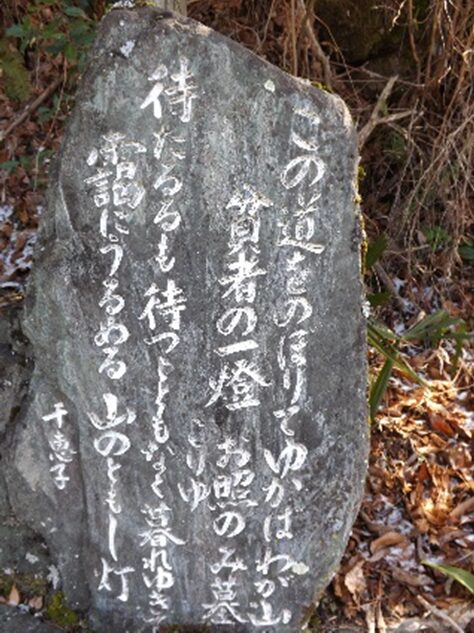 この道をのぼりてゆかばわが山
貧者の一燈 お照のみ墓
こりゆ
待たるるも 待つこともなく 暮れゆきて
靄にうるめる 山のともし灯
千恵子